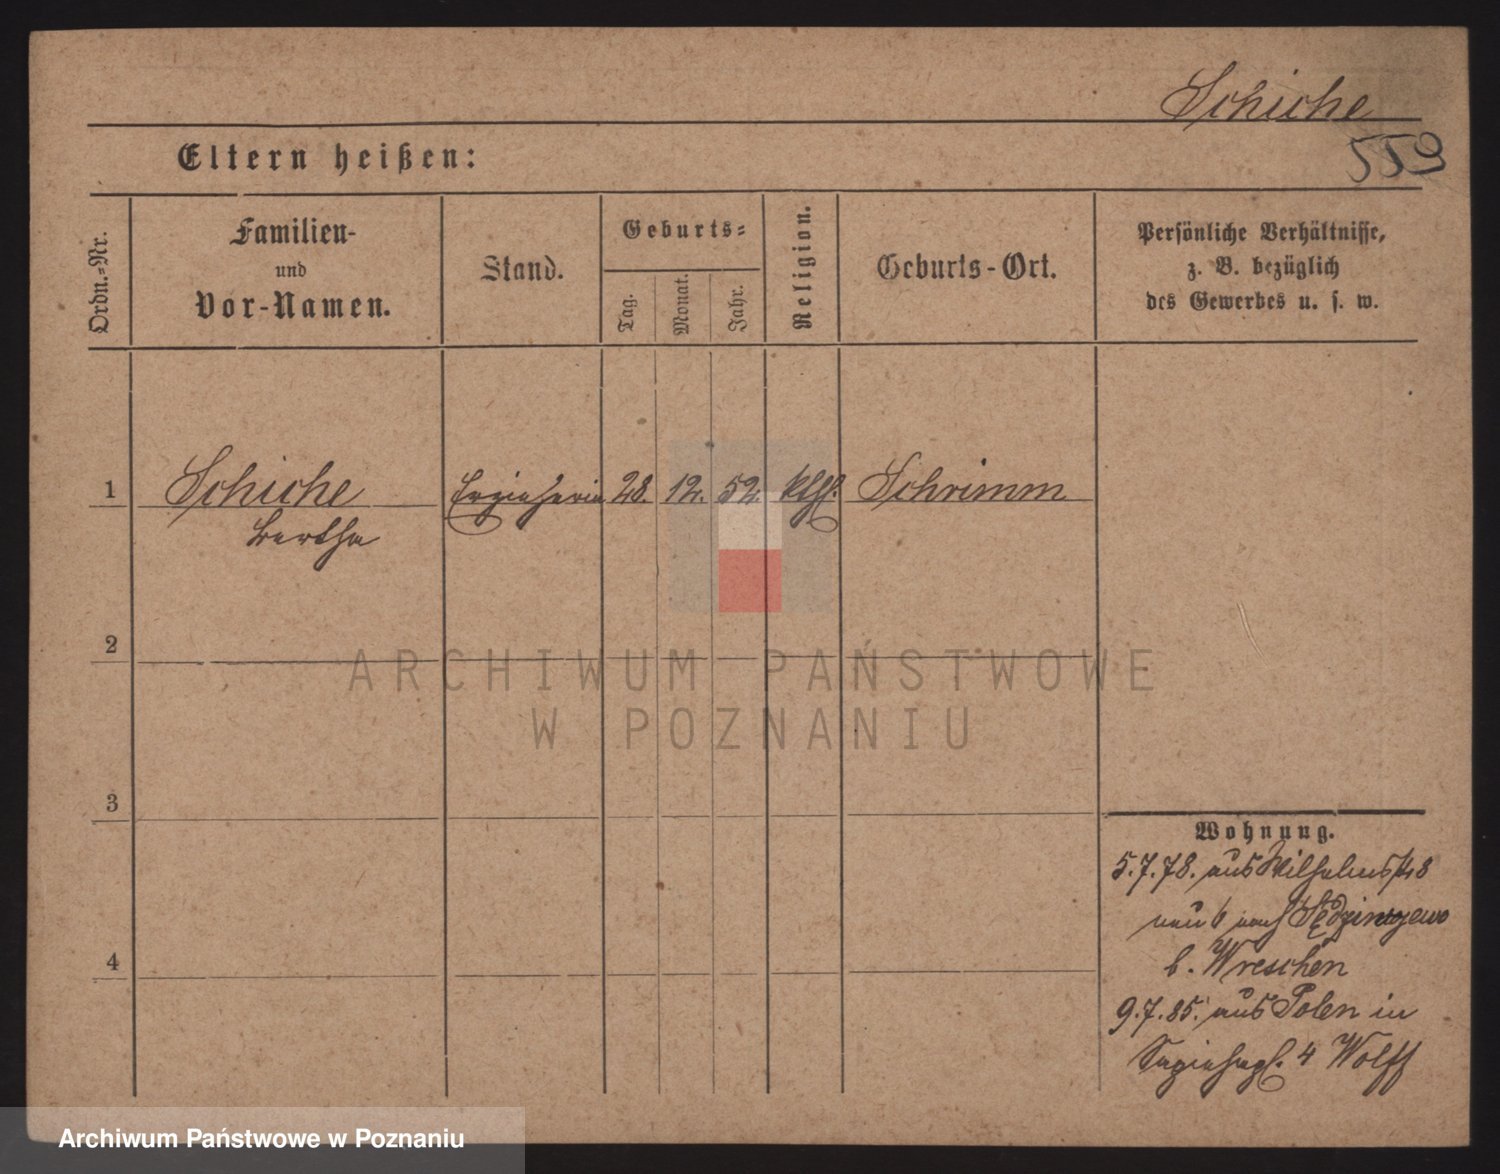 Schiche
559
Eltern heißen:
Ordn.-Nr.
Familien-
und
Vor-Namen.
Stand.
Geburts-
Tag.
Monat.
Jahr.
Religion.
Geburts-Ort.
Persönliche Verhältnisse,
z. B. bezüglich
des Gewerbes u. s. w.
1 Schiche Erzieherin 28. 12. 52. kthl. Schrimm
Bertha
2
ARCHIWUM PAŃSTWOWE
W POZNANIU
3
Wohnung.
5.7.78. aus Wilhelmsstr 8
nach
4
b. Wreschen
9.7.85. aus Polen in
4 Wolff
Archiwum Państwowe w Poznaniu